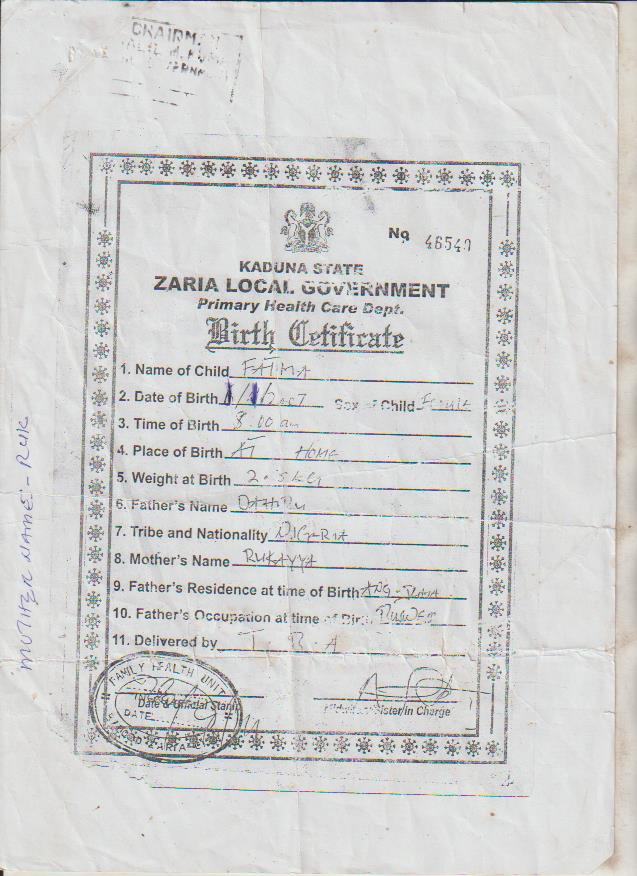 CHAIRMAN
No 46540
KADUNA STATE
ZARIA LOCAL GOVERNMENT
Primary Health Care Dept.
Birth Cetificate
1. Name of Child FATIMA
2. Date of Birth /2007 Sex of Child Female
3. Time of Birth 8:00 am
4. Place of Birth AT HOME
5. Weight at Birth 2.5KG
6. Father's Name DAHIRU
7. Tribe and Nationality NIGERIA
8. Mother's Name RUKAYYA
9. Father's Residence at time of Birth ANG-
10. Father's Occupation at time of Birth
11. Delivered by T.B.A
FAMILY HEALTH UNIT
Date & Official Stamp
DATE
Sister/in Charge
MOTHER NAME:- RUK